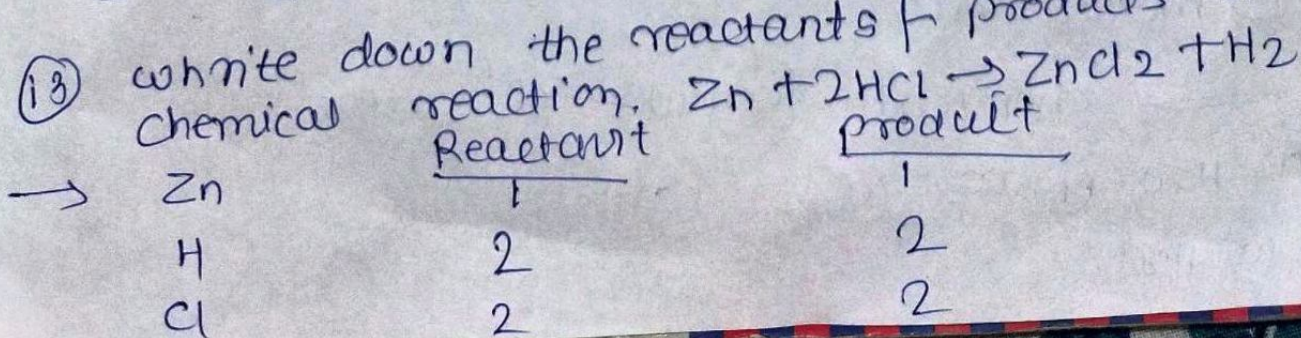 (13) whrite down the reactants & products
chemical reaction. Zn + 2HCl → ZnCl2 + H2
Reactant product
→ Zn 1 1
H 2 2
Cl 2 2